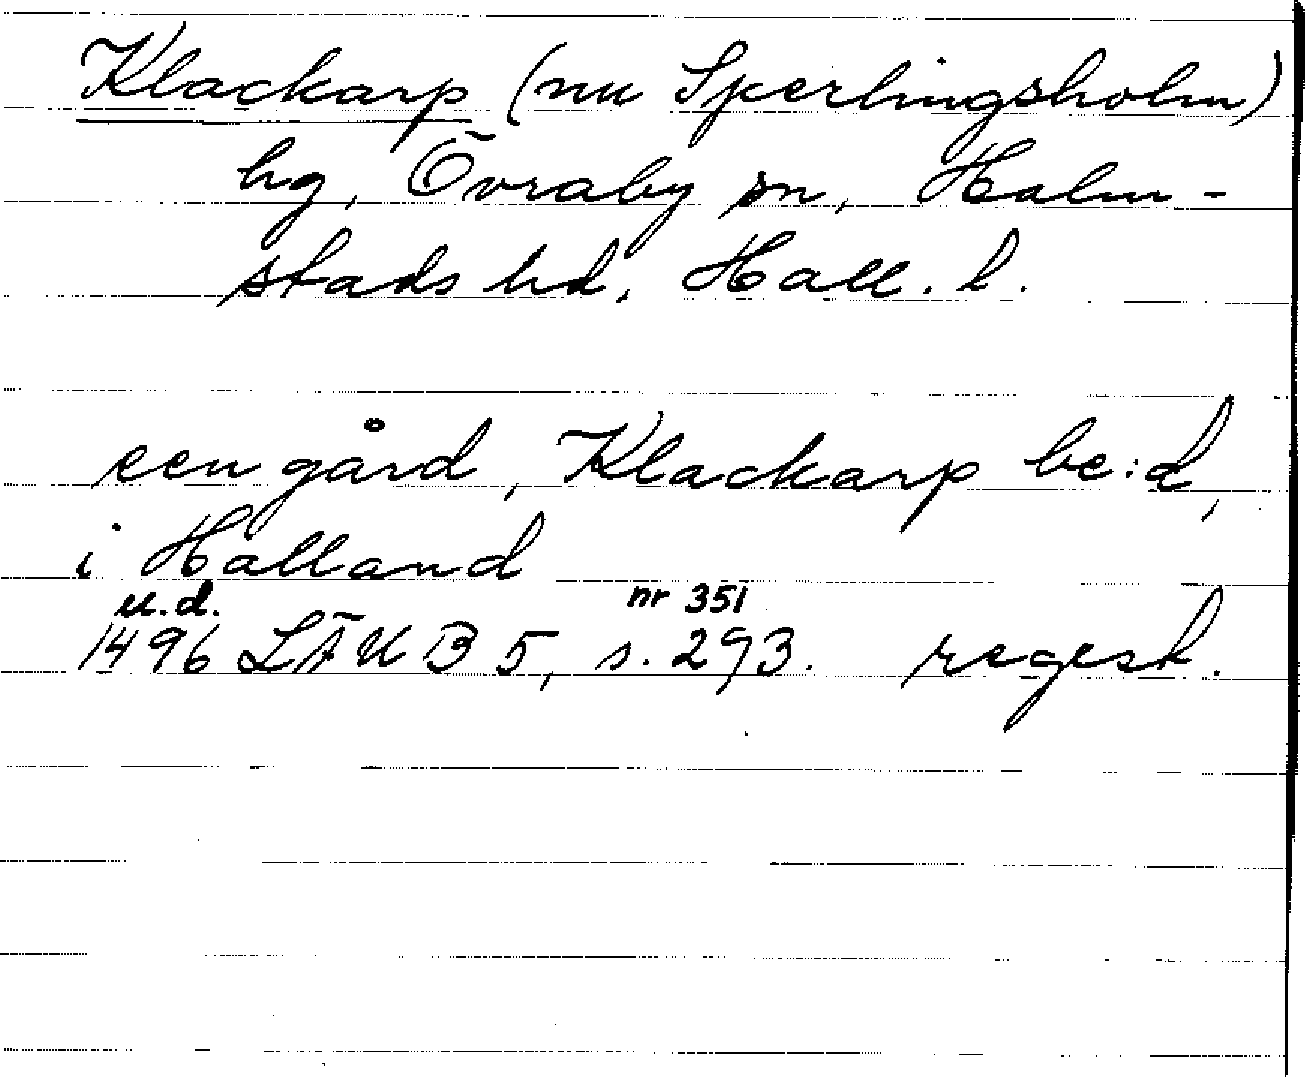 Klackarp (nu Sperlingsholm)
hg, Övraby sn, Halm-
stads hd, Hall. l.
een gård, Klackarp be:d,
i Halland
u.d. nr 351
1496 LÄUB 5, s. 293. regest.